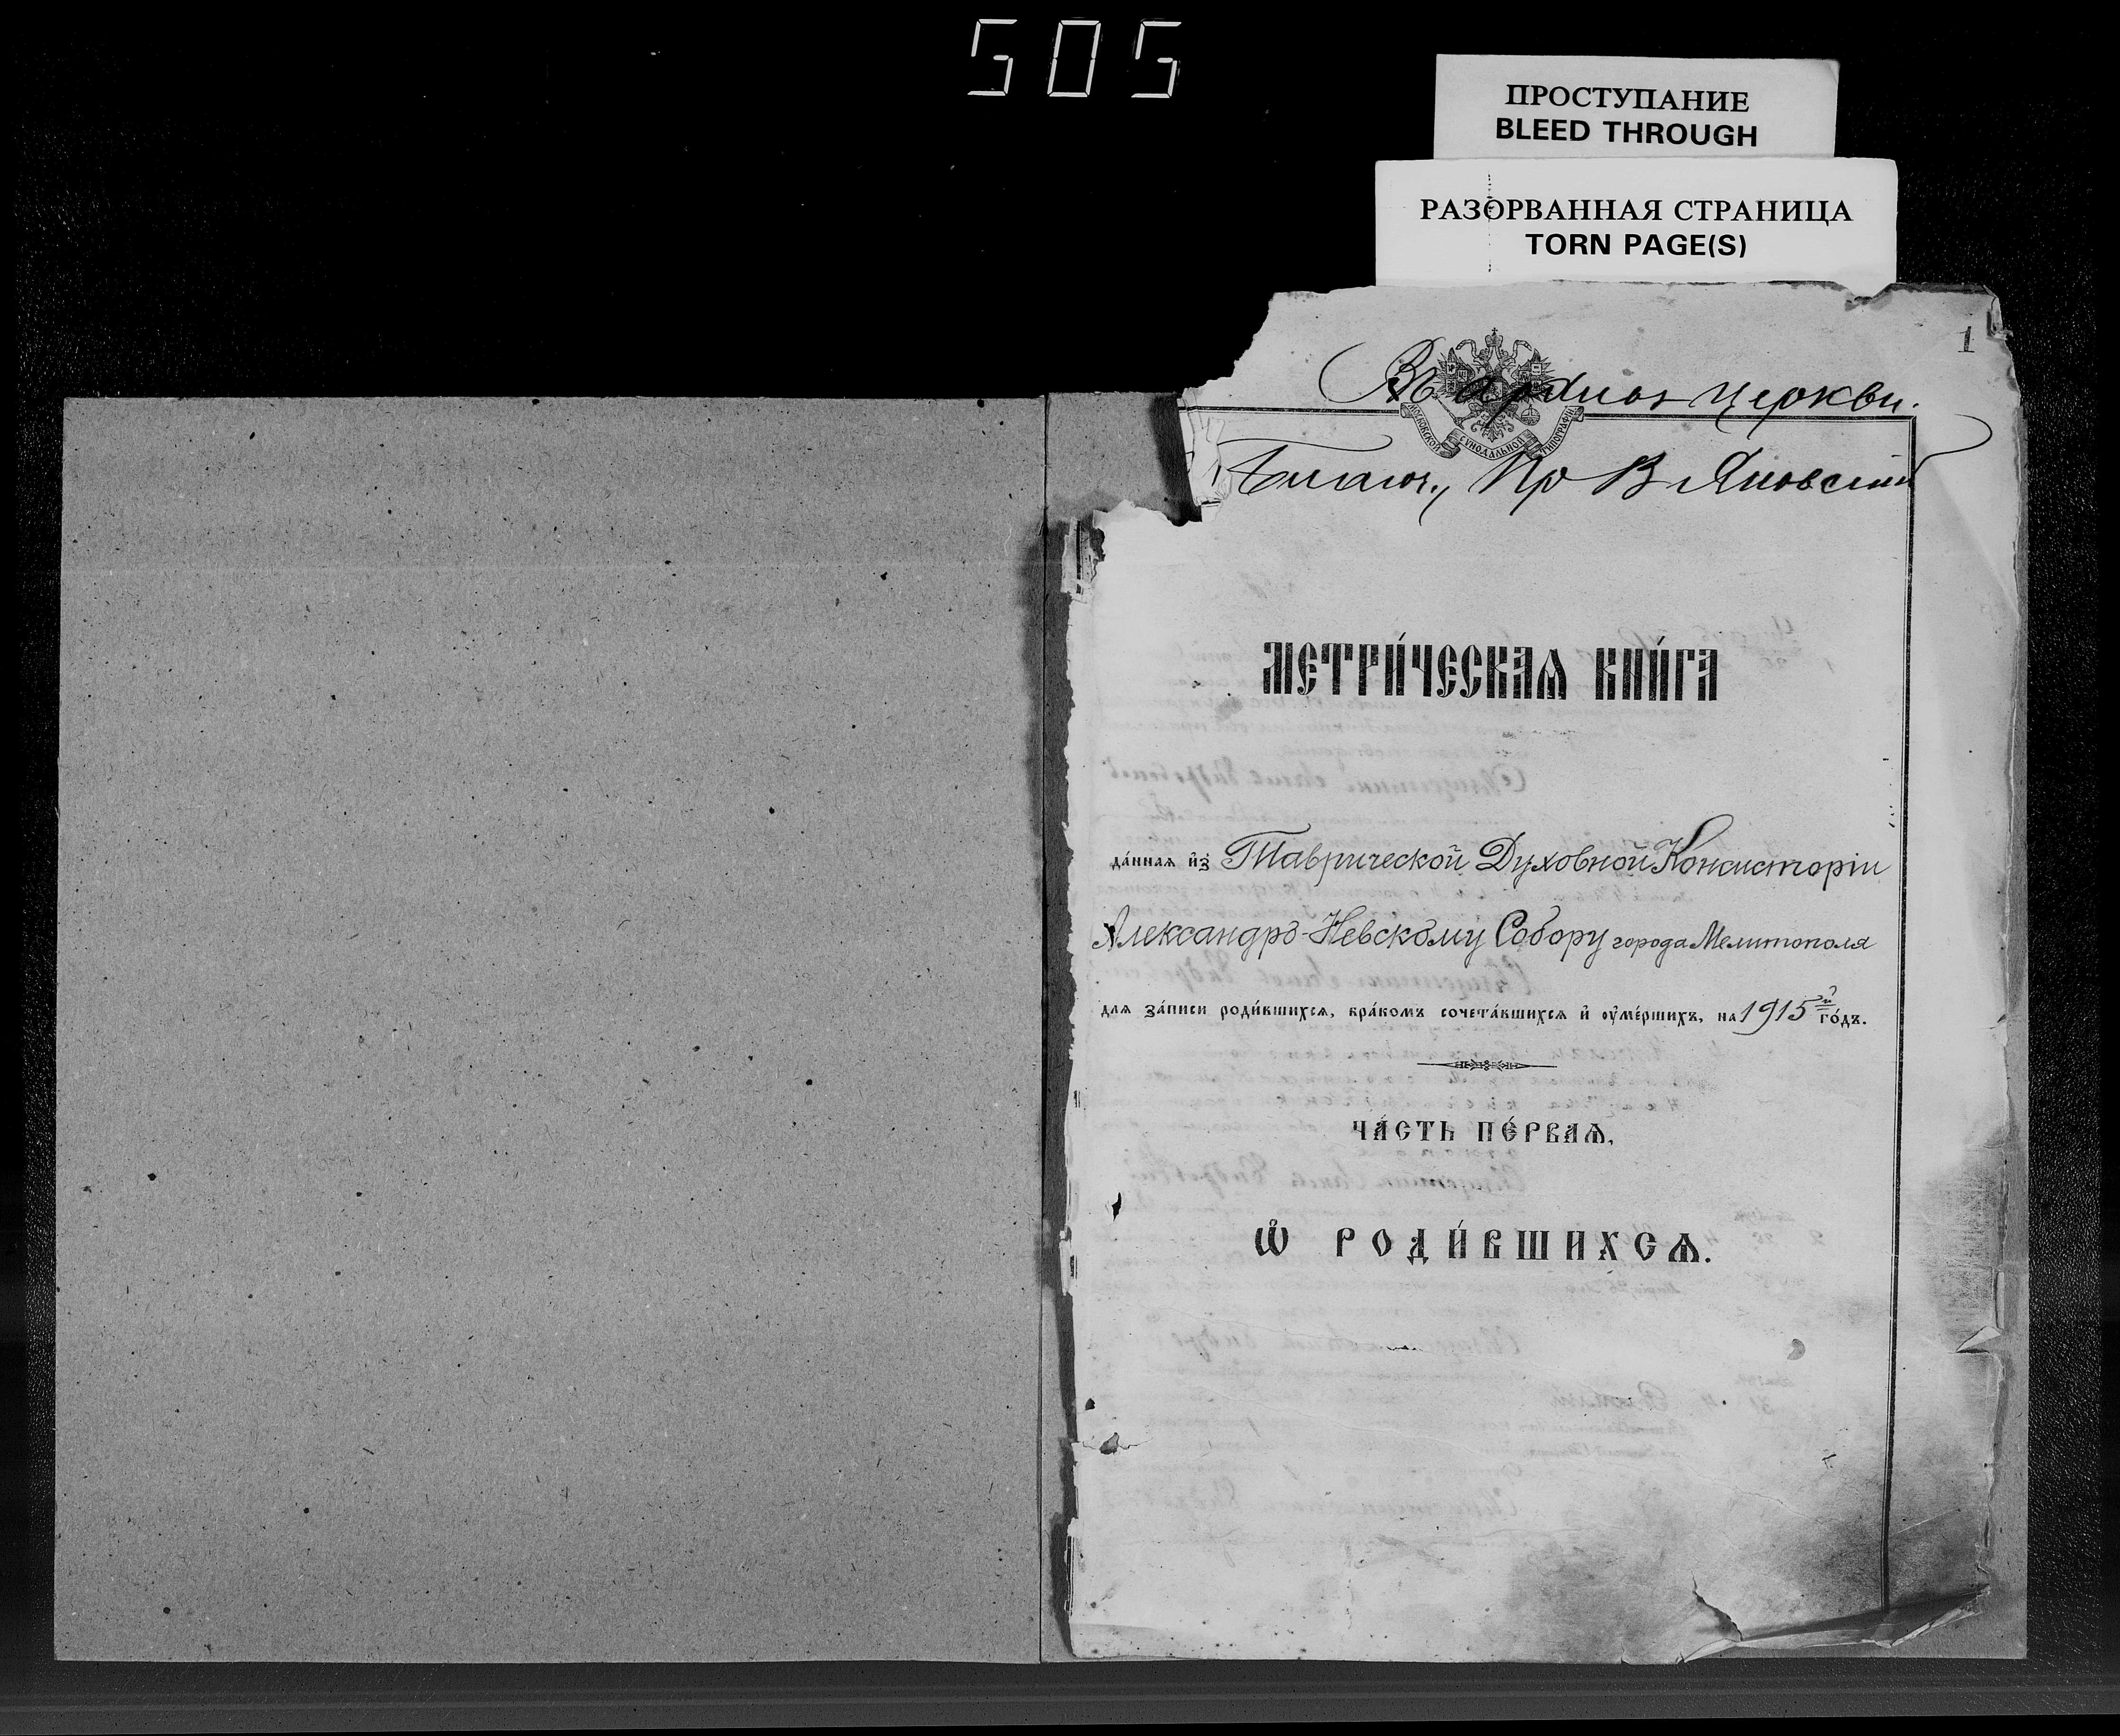 505
ПРОСТУПАНИЕ
BLEED THROUGH
РАЗОРВАННАЯ СТРАНИЦА
TORN PAGE(S)
1
Въ церкви.
МОСКОВСКОЙ СѴНОДАЛЬНОЙ ТИПОГРАФІИ
Благоч., Пр В Яновскій
МЕТРИ́ЧЕСКАѦ КНИ́ГА
да́ннаѧ и҆з̾ Таврической Духовной Консисторіи
Александро-Невскому Собору города Мелитополя
для за́писи роди́вшихсѧ, бра́комъ сочета́вшихсѧ и҆ оу҆ме́ршихъ, на 1915й го́дъ.
ЧА́СТЬ ПЕ́РВАѦ,
Ѡ҆ РОДИ́ВШИХСѦ.